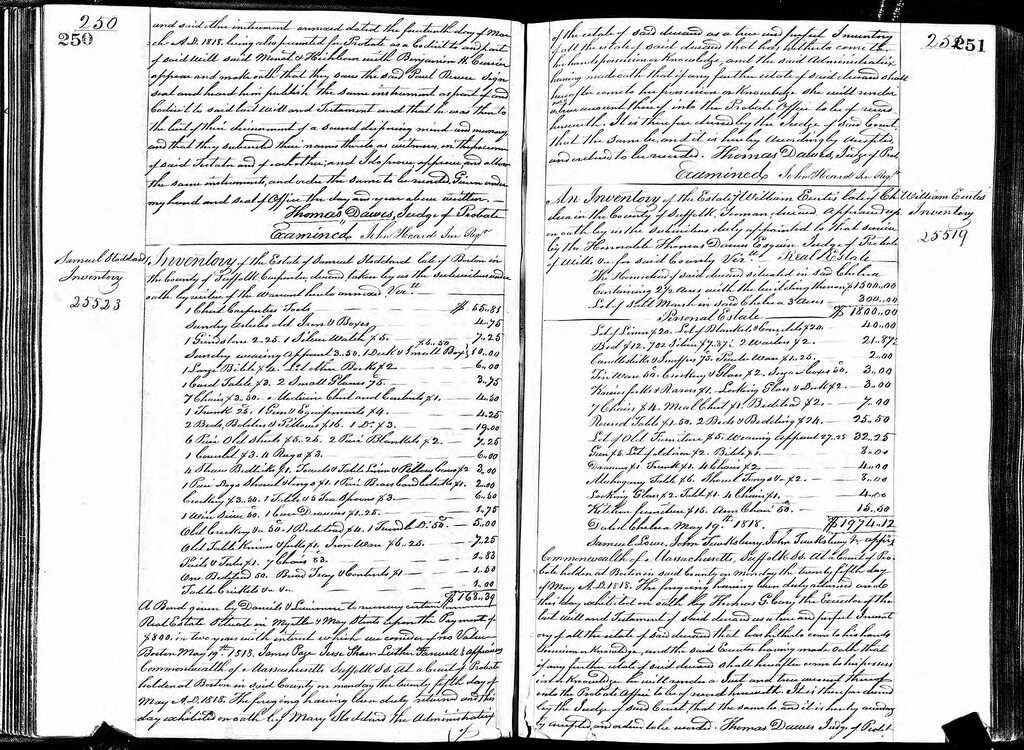 250
250
and said other instrument annexed dated the fourteenth day of Mar-
ch A.D. 1818. being also presented for Probate as a Codicil to and part
of said Will said Minot & Hichborn with Benjamin H. Currier
appear and make oath that they saw the said Paul Revere sign
seal and heard him publish the same instrument as part of and
Codicil to said last Will and Testament and that he was then to
the best of their discernment of a sound disposing mind and memory
and that they subscribed their names thereto as witnesses, in the presence
of said Testator and of each other; and I do prove, approve, and allow
the same instruments, and order the same to be recorded. Given under
my hand and seal of Office the day and year above written.—
Thomas Dawes, Judge of Probate
Examined John Heard Jun Regr
Samuel Stoddard
Inventory
25523
Inventory of the Estate of Samuel Stoddard late of Boston in
the County of Suffolk Carpenter, deced taken by us the subscribers under
oath by virtue of the Warrant hereto annexed Vizt
1 Chest Carpenters Tools $ 55..81
Sundry Articles old Iron & Boxes 4..75
1 Grindstone 2.25. 1 Silver Watch $5. 7..25
Sundry wearing Apparel 3.50. 1 Desk & Small Box $6.50 10..00
1 Large Bible $4. Lot other Books $2 6..00
1 Card Table $3. 2 Small Glasses 75. 3..75
7 Chairs $3.50. Medicine Chest and Contents $1. 4..50
1 Trunk 25. 1 Gun & Equipments $4. 4..25
2 Beds, Bolsters & Pillows $16. 1 Do. $3. 19..00
6 Pair Old Sheets $5.25. 2 Pair Blankets $2. 7..25
1 Coverlid $3. 4 Rugs $3. 6..00
4 Straw Bedticks $1. Towels & Table Linen & Pillow Cases $2 3..00
1 Pair Dogs Shovel & Tongs $1. 1 Pair Brass Candlesticks $1. 2..00
Crockery $3..50. 1 Table & 5 Tea Spoons $3. 6..50
1 Wire Sieve 50. 1 Case Drawers $1.25. 1..75
Old Crockery &c 50. 1 Bedstead $4. 1 Trundle Do. 50. 5..00
Old Table Knives & forks $1. Iron Ware $6..25. 7..25
Pails & Tubs $1. 7 Chairs 83. 1..83
One Bedstead 50. Bread Tray & Contents $1 1..50
Table Crickets &c &c 1..00
$168..39
A Bond given by Daniels & to convey certain
Real Estate situated on Myrtle & May Streets upon the Payment of
$800. in two years with interest which we consider of no Value
Boston May 19th 1818. James Page Jesse Shaw Luther Farwell appraisers
Commonwealth of Massachusetts Suffolk Ss. At a Court of Probate
holden at Boston in said County on monday the twenty fifth day of
May A.D. 1818. The foregoing having been duly returned and this
day exhibited on oath by Mary Stoddard the Administratrix
of
251
251
of the estate of said deceased as a true and perfect Inventory
of all the estate of said deceased that has hitherto come to
her hands possession or knowledge, and the said Administratrix
having made oath that if any further estate of said deceased shall
hereafter come to her possession or knowledge she will render
a true account thereof into the Probate Office to be of record
herewith. It is therefore decreed by the Judge of said Court
that the same be, and it is hereby accordingly accepted,
and ordered to be recorded. Thomas Dawes, Judge of Prob
Examined, John Heard Jun Regr
William Eustis
Inventory
25519
An Inventory of the Estate of William Eustis late of Chel-
sea in the County of Suffolk, Yeoman, deceased Appraised up-
on oath by us the subscribers duly appointed to that service
by the Honorable Thomas Dawes Esquire Judge of Probate
of Wills &c for said County Vizt Real Estate
The Homestead of said deceased situated in said Chelsea
Containing 2 1/2 Acres with the buildings thereon $1500..00
Lot of Salt Marsh in said Chelsea 3 Acres 300..00
Personal Estate $ 1800..00
Lot of Linen $20. Lot of Blankets & Coverlets $20. 40..00
Bed $12. 70z Silver $7.87. 2 Waiters $2. 21..87
Candlesticks & Snuffers 75. Pewter Ware $1.25. 2..00
Tin Ware 50. Crockery & Glass $2. Sugar Boxes 50. 3..00
Knives forks & Razors $1. Looking Glass & Desk $2. 3..00
7 Chairs $4. Meal Chest $1. Bedstead $2. 7..00
Round Table $1.50. 2 Beds & Bedding $24. 25..50
Lot of Old Furniture $5. Wearing Apparel 27.25 32.25
Gun $5. Lot of old iron $2. Bible $1. 8..00
Drawers $1. Trunk $1. 4 Chairs $2 4..00
Mahogany Table $6. Shovel Tongs &c $2. 8..00
Looking Glass $2. Table $1. 4 Chairs $1. 4..00
Kitchen furniture $15. Arm Chair 50. 15..50
Dated Chelsea May 19th 1818. $1974..12
Samuel Low, John Tewksbury, John Tewksbury Jr apprs
Commonwealth of Massachusetts, Suffolk Ss. At a Court of Pro-
bate holden at Boston in said County on Monday the twenty fifth day
of May A.D. 1818. The foregoing having been duly returned and
this day exhibited on oath by Thomas G. Cary the Executor of the
last Will and Testament of said deceased as a true and perfect Invent-
ory of all the estate of said deceased that has hitherto come to his hands
possession or knowledge, and the said Executor having made oath that
if any further estate of said deceased shall hereafter come to his posses-
sion or knowledge he will render a just and true account thereof
into the Probate Office to be of record herewith. It is therefore decreed
by the Judge of said Court that the same be and it is hereby according-
ly accepted, and ordered to be recorded. Thomas Dawes Judge of Probt.